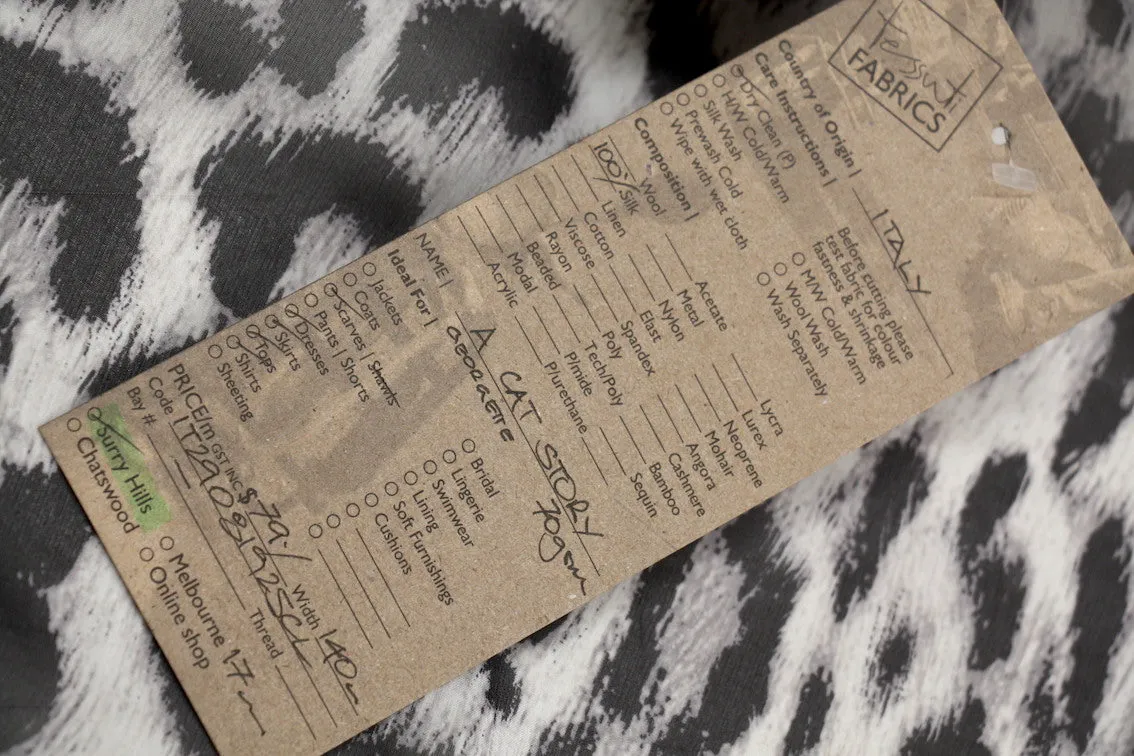 Tessuti
FABRICS
Country of Origin | ITALY
Care Instructions |
Dry Clean (P)
H/W Cold/Warm
Silk Wash
Prewash Cold
Wipe with wet cloth
Before cutting please
test fabric for colour
fastness & shrinkage
H/W Cold/Warm
Wool Wash
Wash Separately
Composition |
Wool
100% Silk
Linen
Cotton
Viscose
Rayon
Beaded
Modal
Acrylic
Acetate
Metal
Nylon
Elast
Spandex
Poly
Tech/Poly
P/mide
P/urethane
Lycra
Lurex
Neoprene
Mohair
Angora
Cashmere
Bamboo
Sequin
NAME | A CAT STORY
GEORGETTE 70gsm
Ideal For |
Jackets
Coats
Scarves | Shawls
Pants | Shorts
Dresses
Skirts
Tops
Shirts
Sheeting
Bridal
Lingerie
Swimwear
Lining
Soft Furnishings
Cushions
PRICE/m GST INC $79./ Width 140
Code Thread
Bay #:
Surry Hills
Chatswood
Melbourne
Online shop